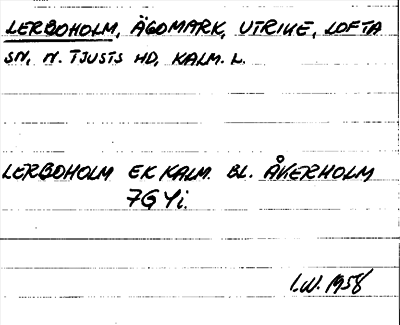 LERBOHOLM, ÄGOMARK, UTRIKE, LOFTA
SN, N. TJUSTS HD, KALM. L.
LERBOHOLM EK KALM. BL. ÅKERHOLM
7G Yi.
I.W. 1958